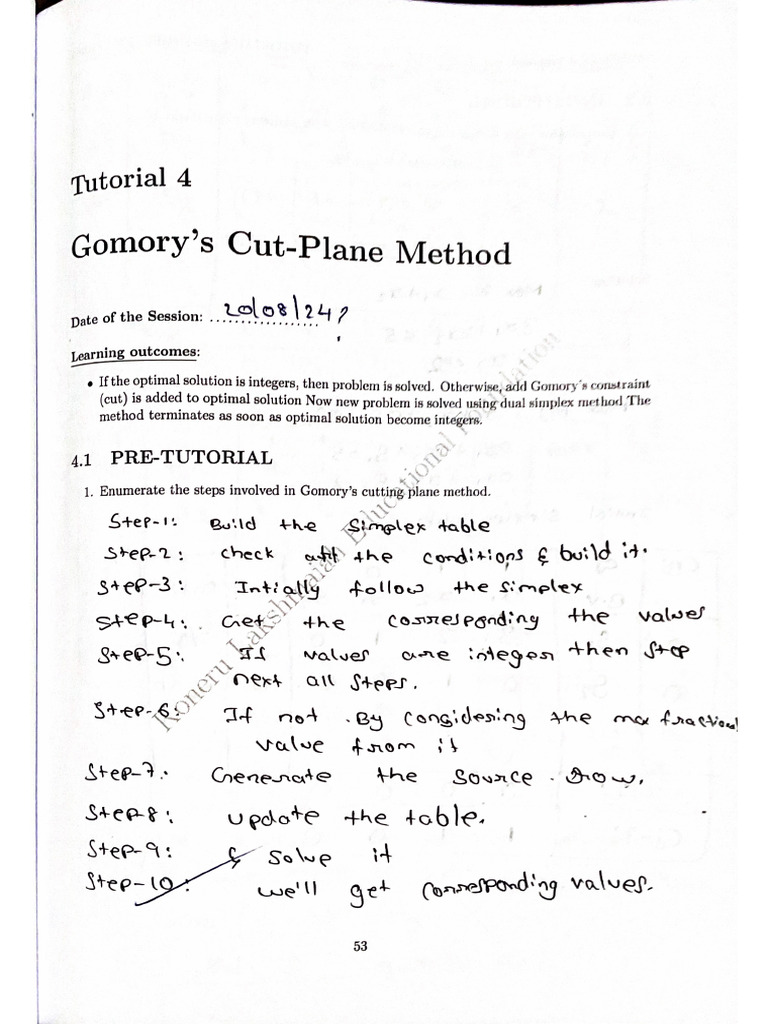 Tutorial 4
Gomory's Cut-Plane Method
Date of the Session: 20/08/24
Learning outcomes:
• If the optimal solution is integers, then problem is solved. Otherwise, add Gomory's constraint
(cut) is added to optimal solution Now new problem is solved using dual simplex method The
method terminates as soon as optimal solution become integers.
4.1 PRE-TUTORIAL
1. Enumerate the steps involved in Gomory's cutting plane method.
Step-1: Build the Simplex table
Step-2: check all the conditions & build it.
Step-3: Intially follow the simplex
Step-4: Get the corresponding the values
Step-5: If values are integer then stop
next all steps.
Step-6: If not . By considering the max fractional
value from it
Step-7: Generate the source row.
Step-8: update the table.
Step-9: & solve it
Step-10: we'll get corresponding values.
Koneru Lakshmaiah Educational Foundation
53